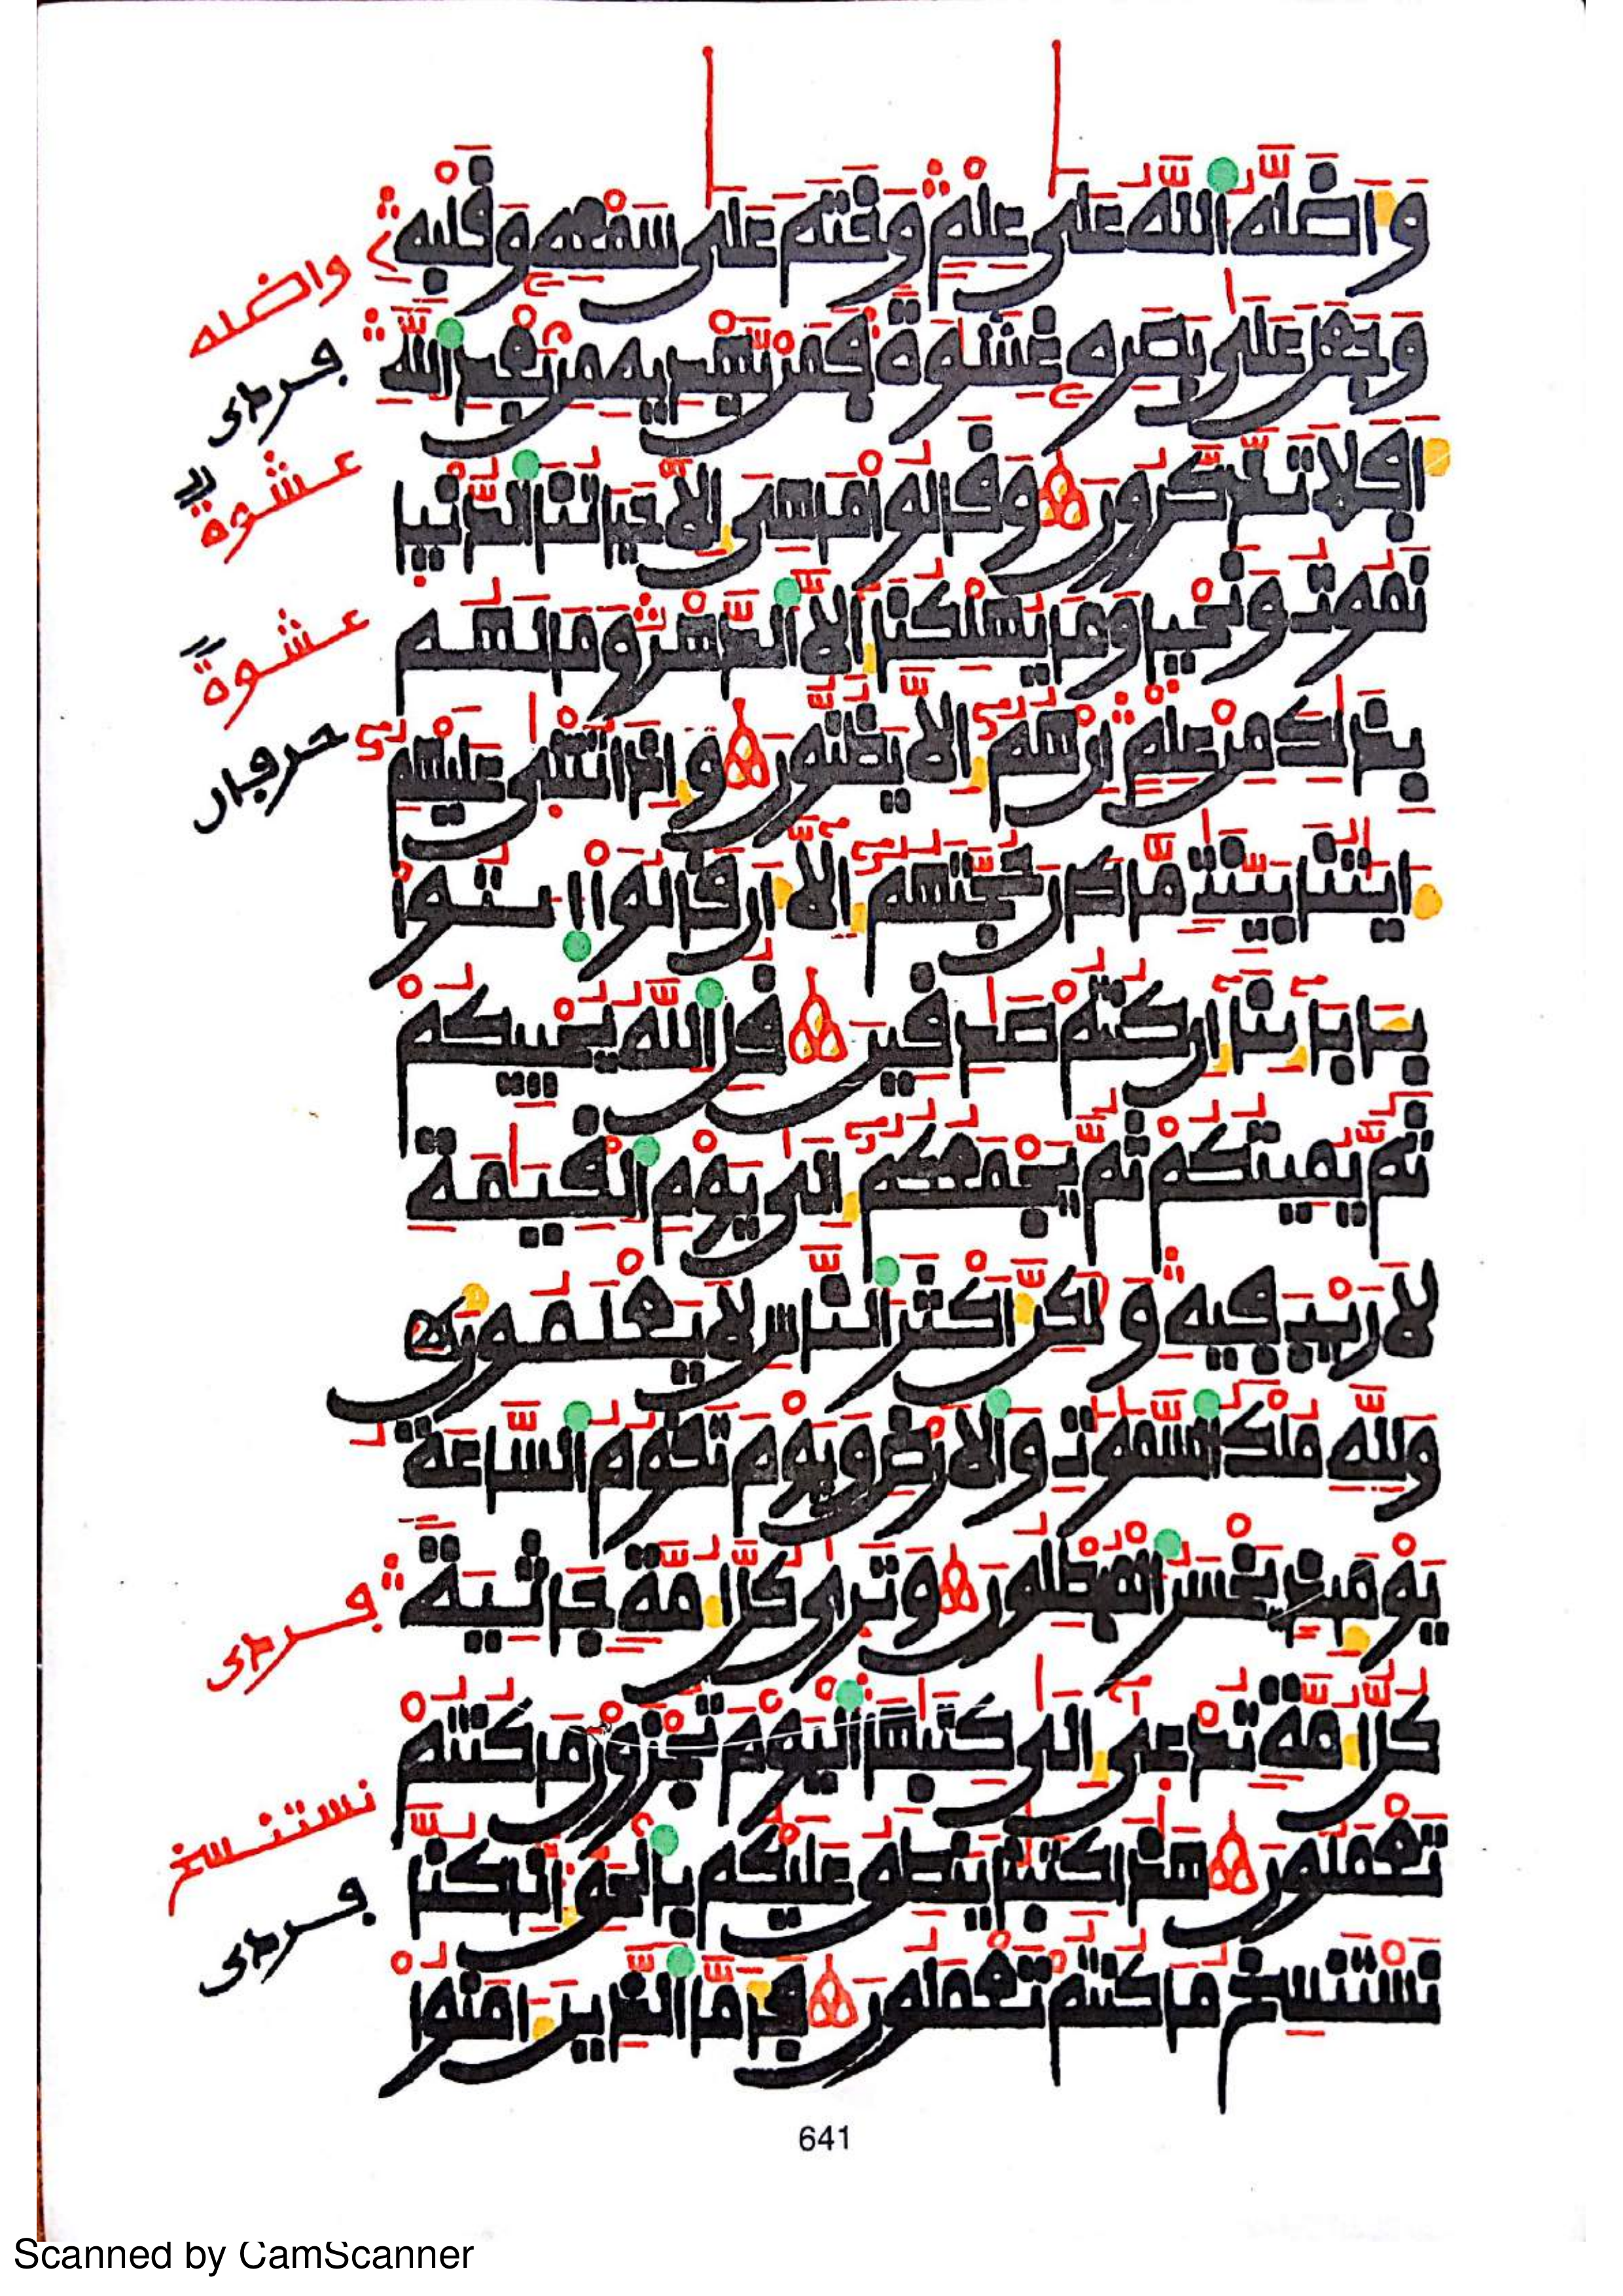 وَأَضَلَّهُ اللَّهُ عَلَىٰ عِلْمٍ وَخَتَمَ عَلَىٰ سَمْعِهِ وَقَلْبِهِ
واضله
وَجَعَلَ عَلَىٰ بَصَرِهِ غِشَٰوَةً فَمَنْ يَهْدِيهِ مِنْ بَعْدِ اللَّهِ
أَفَلَا تَذَّكَّرُونَ وَقَالُوا مَا هِيَ إِلَّا حَيَاتُنَا الدُّنْيَا
عشوة
نَمُوتُ وَنَحْيَا وَمَا يُهْلِكُنَا إِلَّا الدَّهْرُ وَمَا لَهُم
عشوة
بِذَٰلِكَ مِنْ عِلْمٍ إِنْ هُمُ إِلَّا يَظُنُّونَ وَإِذَا تُتْلَىٰ عَلَيْهِمُ
ءَايَٰتُنَا بَيِّنَٰتٍ مَّا كَانَ حُجَّتَهُمُ إِلَّا أَن قَالُوا ايتُوا
بِـَٔابَائِنَا إِن كُنتُمْ صَٰدِقِينَ قُلِ اللَّهُ يُحْيِيكُمْ
ثُمَّ يُمِيتُكُمْ ثُمَّ يَجْمَعُكُمُ إِلَىٰ يَوْمِ الْقِيَٰمَةِ
لَا رَيْبَ فِيهِ وَلَٰكِنَّ أَكْثَرَ النَّاسِ لَا يَعْلَمُونَ
وَلِلَّهِ مُلْكُ السَّمَٰوَٰتِ وَالْأَرْضِ وَيَوْمَ تَقُومُ السَّاعَةُ
يَوْمَئِذٍ يَخْسَرُ الْمُبْطِلُونَ وَتَرَىٰ كُلَّ أُمَّةٍ جَاثِيَةً
كُلُّ أُمَّةٍ تُدْعَىٰ إِلَىٰ كِتَٰبِهَا الْيَوْمَ تُجْزَوْنَ مَا كُنتُمْ
تَعْمَلُونَ هَٰذَا كِتَٰبُنَا يَنطِقُ عَلَيْكُم بِالْحَقِّ إِنَّا كُنَّا
نستنسخ
نَسْتَنسِخُ مَا كُنتُمْ تَعْمَلُونَ فَأَمَّا الَّذِينَ ءَامَنُوا
641
Scanned by CamScanner